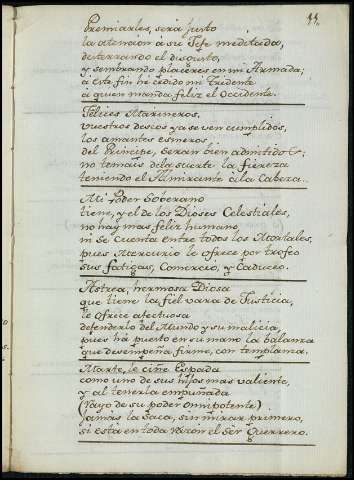 11.
Premiarles, será justo
la atencion à su Jefe meditada,
desterrando el disgusto,
y sembrando placeres en mi Armada;
à este fin hé cedido mi Tridente
à quien manda feliz el Occidente.
Felices Marineros,
vuestros deseos ya se ven cumplidos,
los amantes esmeros,
del Principe, serán bien admitidos;
no temais dela suerte la fiereza
teniendo el Almirante à la Cabeza.
Mi Poder Soberano
tiene, y el de los Dioses Celestiales,
no hay mas feliz humano,
ni se cuenta entre todos los Mortales,
pues Mercurio le ofrece por trofeo
sus fatigas, Comercio, y Caduceo.
Astrea, hermosa Diosa
que tiene la fiel vara de Justicia,
le ofrece afectuosa
defenderlo del Mundo y su malicia,
pues há puesto en su mano la balanza
que desempeña firme, con templanza.
Marte, le ciñe Espada
como uno de sus hijos mas valiente,
y al tenerla empuñada
(rayo de su poder omnipotente)
jamás la saca, sin mirar primero,
si está en toda razon el Ser Guerrero.